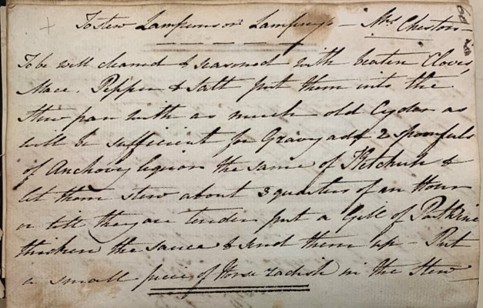 To stew Lamperns or Lampreys – Mrs Cheston
To be well cleaned & seasoned with beaten Cloves,
Mace. Pepper & Salt put them into the
Stew pan with as much old Cyder as
will be sufficient for Gravy add 2 spoonfuls
of Anchovy liquor the same of Ketchup &
let them stew about 3 quarters of an Hour
or till they are tender put a Gill of Port Wine
thicken the sauce & send them up – Put
a small piece of Horse radish in the Stew